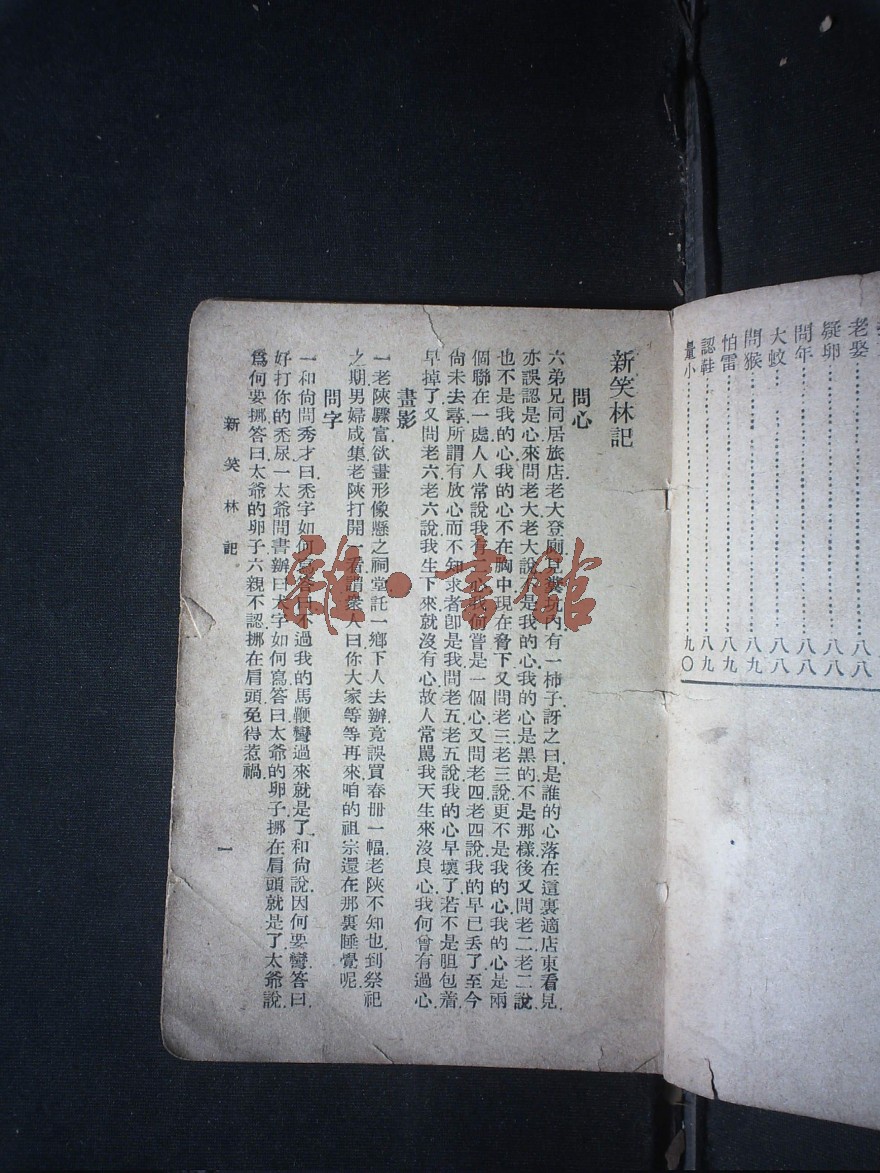 老娶⋯⋯八八
疑卵⋯⋯八八
問年⋯⋯八八
大蚊⋯⋯八八
問猴⋯⋯八九
怕雷⋯⋯八九
認鞋⋯⋯八九
量小⋯⋯九〇
新笑林記
問心
六弟兄同居旅店老大登廁見糞坑內有一柿子訝之曰是誰的心落在這裏適店東看見
亦誤認是心來問老大老大說不是我的心我的心是黑的不是那樣後又問老二老二說
也不是我的心我的心不在胸中現在脅下又問老三老三說更不是我的心我的心是兩
個聯在一處人人常說我有二心我何嘗是一個心又問老四老四說我的早已丟了至今
尙未去尋所謂有放心而不知求者卽是我問老五老五說我的心早壞了若不是胆包着
早掉了又問老六老六說我生下來就沒有心故人常罵我天生來沒良心我何曾有過心
畫影
一老陝驟富欲畫形像懸之祠堂託一鄉下人去辦竟誤買春册一幅老陝不知也到祭祀
之期男婦咸集老陝打開一看謂衆人曰你大家等等再來咱的祖宗還在那裏睡覺呢
問字
一和尙問秀才曰禿字如何寫答曰不過我的馬鞭彎過來就是了和尙說因何要彎答曰
好打你的禿𡱁一太爺問書辦曰犬字如何寫答曰太爺的卵子挪在肩頭就是了太爺說
爲何要挪答曰太爺的卵子六親不認挪在肩頭免得惹禍
新笑林記
一
雜·書館